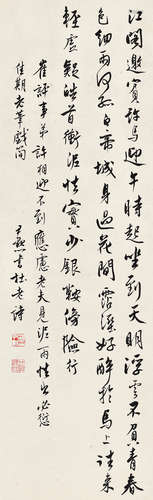 江閣邀賓許馬迎午時起坐到天明浮雲不負青春
色細雨何孤白帝城身過花間霑濕好醉於馬上往來
輕虛疑皓首衝泥怯實少銀鞍傍險行
崔評事弟許相迎不到應慮老夫見泥雨怯出必愆
佳期走筆戲簡
尹默書杜老詩